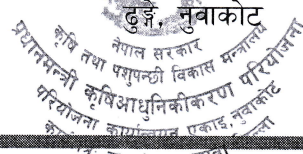 ढुङ्गे, नुवाकोट
नेपाल सरकार
कृषि तथा पशुपन्छी विकास मन्त्रालय
प्रधानमन्त्री कृषि आधुनिकीकरण परियोजना
परियोजना कार्यान्वयन एकाइ, नुवाकोट